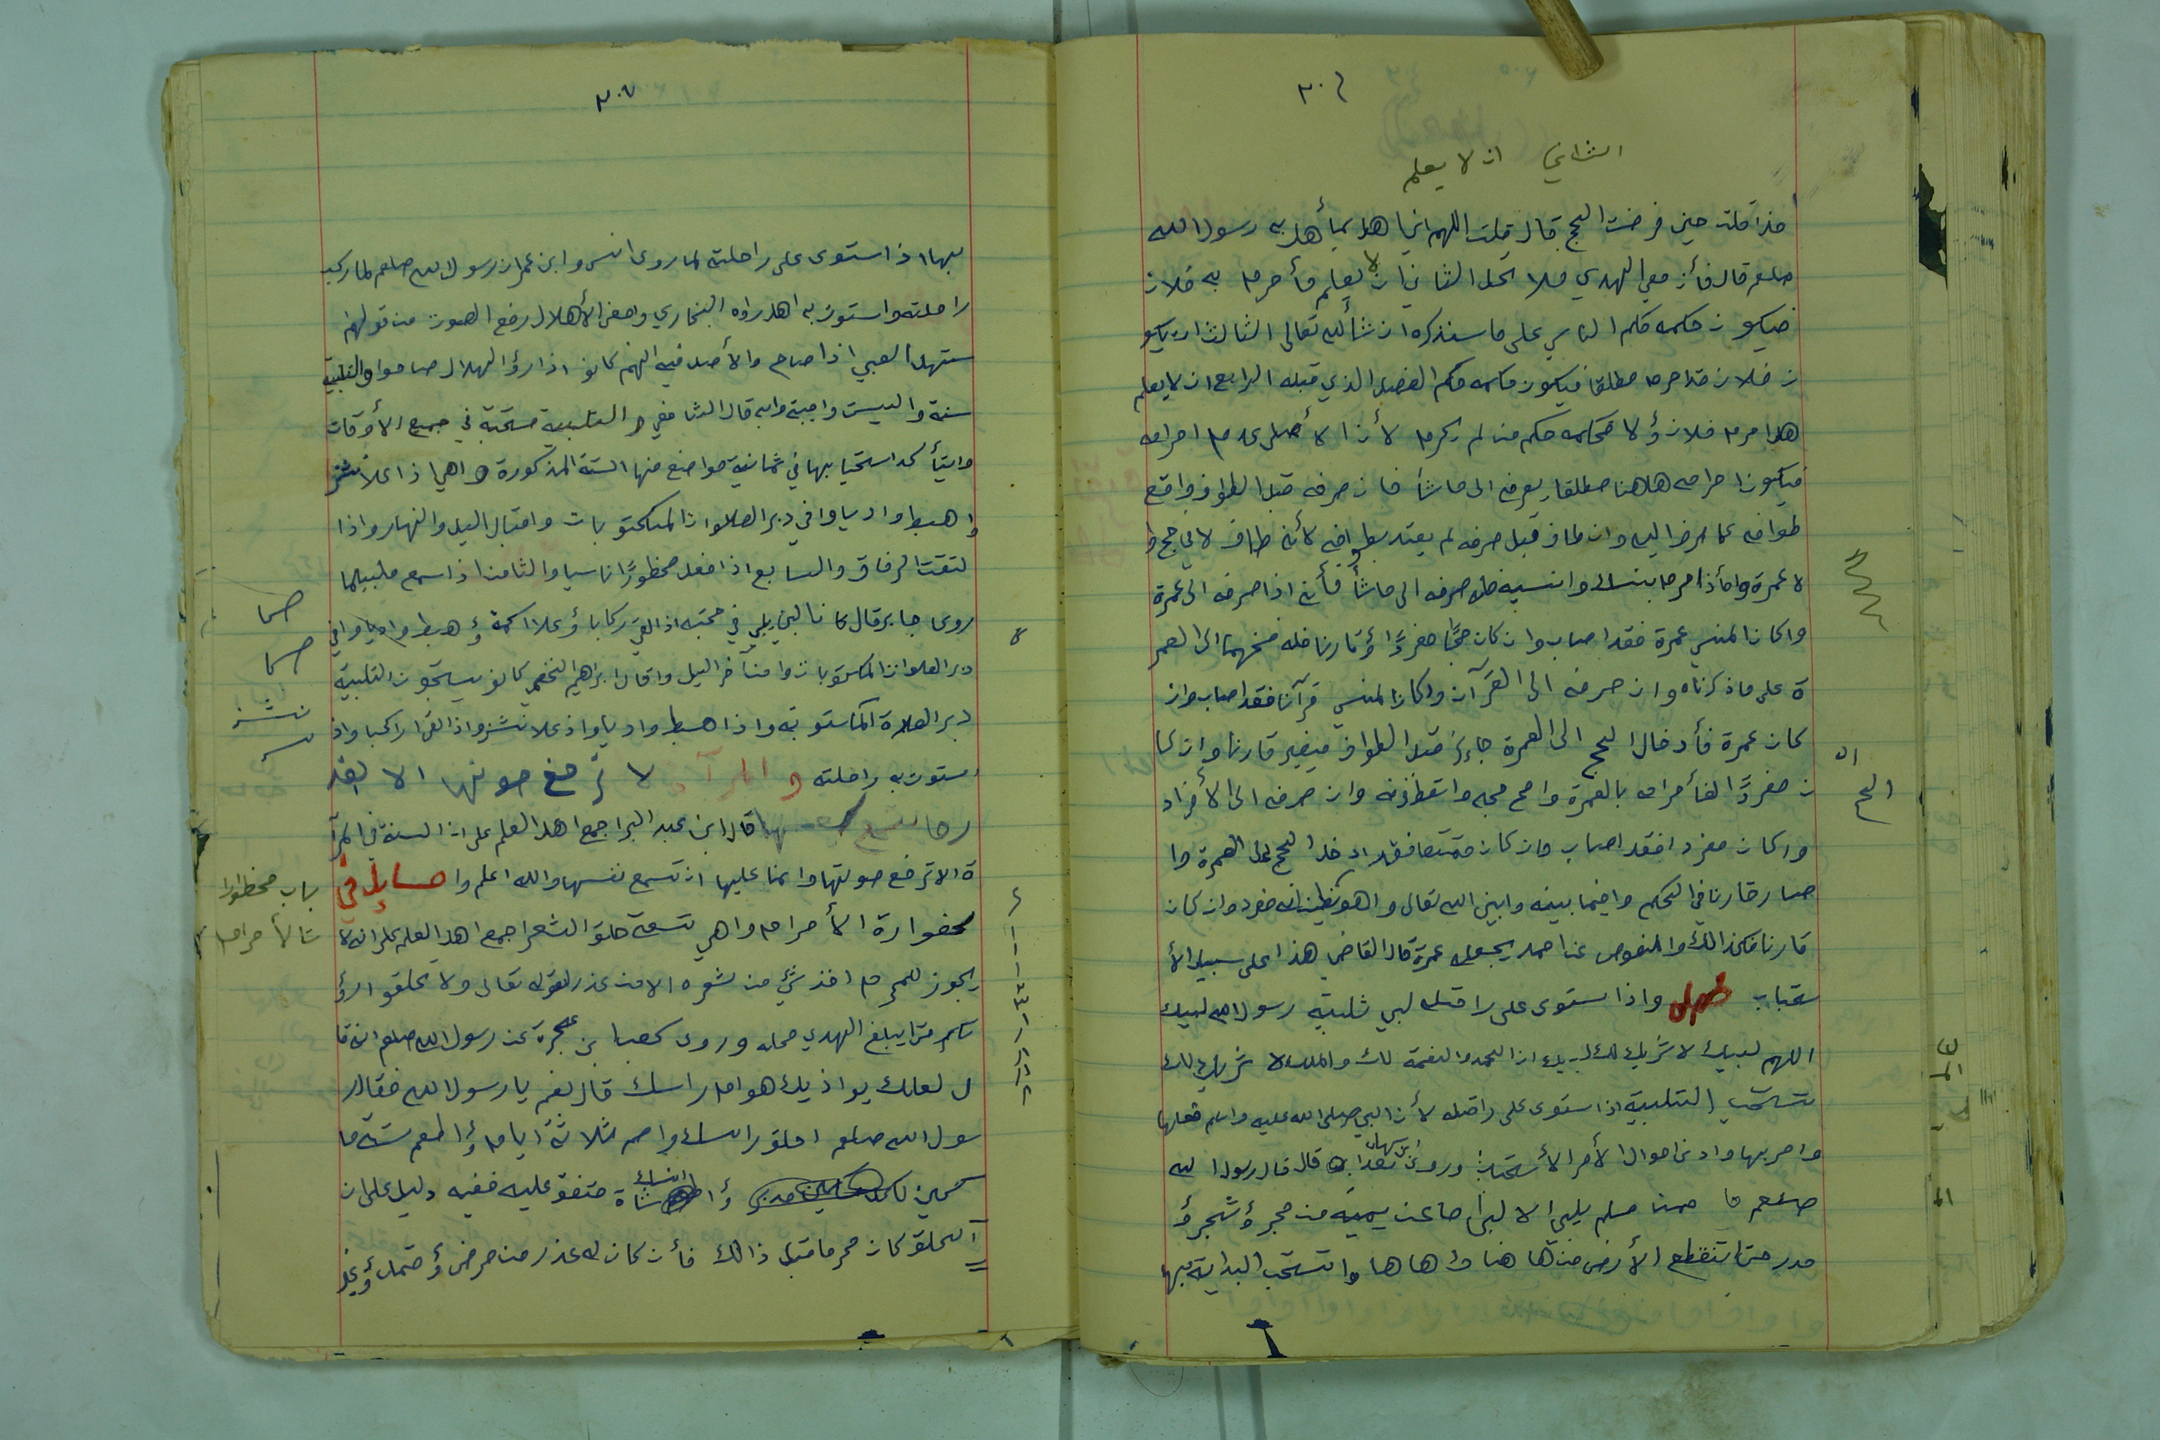 ٣٠٦
الثاني ان لا يعلم
مذا قلت حين فرضت الحج قال قلت اللهم اني اهل بما أهل به رسول الله
صلعم قال فأن معي الهدي فلا تحل الثاني ان لا يعلم فأحرم به فلان
فيكون حكمه حكم الناسي على ما سنذكره ان شأ لله تعالى الثالث ان يكو
ن فلان قد احرم مطلقا فيكون حكمه حكم الفصل الذي قبله الرابع ان لا يعلم
هل احرم فلان ؤلا فحكمه حكم من لم يحرم لأن الأصل عدم احرامه
فيكون احرامه هاهنا مطلقا يصرفه الى ماشأ فان صرفه قبل الطواف واقع
طوافه عما صرف اليه وان طاف قبل صرفه لم يعتد بطوافه لأنه طاف لا في حج و
لا عمرة واأذا احرم بنسك وانسيه فله صرفه الى ماشأ فأن اذا صرفه الى عمرة
واكان المنسي عمرة فقد اصاب وان كان حجًا مفردًا ؤقارنا فله فسخهما الى العمر
ة على ماذكرناه وان صرفه الى القرآن واكان المنسي قرآنا فقد اصاب وان
كان عمرة فأدخال الحج الى العمرة جاءز قبل الطواف فيصير قارنا وان كا
ن مفردًا لغا أحرامه بالعمرة واصح حجه واسقط فرضه وان صرفه الى الأفراد
واكان مفردا فقد اصاب وان كان متمتعا فقد ادخل الحج على العمرة وا
صار قارنا في الحكم وافيما بينه وابين الله تعالى واهو يظن انه مفرد وان كان
قارنا فكذالك والمنصوص عن احمد يجعله عمرة قال القاضي هذا على سبيل الأ
ستحباب فصل واذا ستوى على راحلته لبي تلبية رسول الله لبيك
اللهم لبيك لا شريك لك لبيك ان الحمد والنعمة لك والملك لا شريك لك
تستحب التلبية اذا ستوى على راحلته لأن النبي صلى الله عليه واسلم فعلها
وامر بها وادنى احوال الأمر الأستحباب وروى سهل ابن سعد قال قال رسول الله
صلعم ما من مسلم يلبي الا لبى ما عن يمينه من حجر ؤ شجر ؤ
مدر حتى تنقطع الأرض من هاهنا واهاها وا تستحب البداية بها
ان
الحج
٣٠٧
بها اذا ستوى على راحلته لما روى انس وابن عمر ان رسول الله صلعم لما ركب
راحلته واستوت به اهل رواه البخاري ومعنى الأهلال رفع الصوت من قولهم
ستهل الصبي اذا صاح والأصل فيه انهم كانو اذا رؤ الهلال صاحوا والتلبية
سنة وا ليست واجبة وابه قال الشافعي و التلبية مستحبة في جميع الأوقات
وايتأكد استحبابها في ثمانية مواضع منها الستة المذكورة واهي اذا علا نشز
ؤ هبط واديا وافي دبر الصلوات المكتوبات واقبال اليل والنهار واذا
لتقت الرفاق والسابع اذا فعل محظورًا ناسيا والثامن اذا سمع ملبيا لما
روى جابر قال كان النبي يلبي في حجته اذا لقى ركابا ؤ علا اكمة ؤ هبط واديا وافي
دبر الصلوات المكتوبات وامن آخر اليل واقال ابراهيم النخعي كانو يستحبون التلبية
دبر الصلاة المكتوبة واذا هبط واديا واذ علا نشز واذ القى راكبا واذ
ستوت به راحلته و المرآة لا ترفع صوتها الا بقد
ر ما تسمع قال ابن عبد البر اجمع اهل العلم على ان السنة في المرآ
ة الا ترفع صوتها وانما عليها ان تسمع نفسها والله اعلم وا مسايل في
محضورة الأحرام واهي تسعة حلق الشعر اجمع اهل العلم على انه لا
يجوز للمحرم اخذ شيٍ من شعره الا من عذر لقوله تعالى ولا تحلقوا رؤ
سكم حتى يبلغ الهدي محله وروى كعب ابن عجرة عن رسول الله صلعم انه قا
ل لعلك يواذيك هوام راسك قال نعم يا رسول الله فقال ر
سول الله صلعم احلق راسك واصم ثلاثة أيام ؤ اطعم ستة مسا
كين ؤ انسك شاة متفق عليه ففيه دليل على ان
الحلق كان محرما قبل ذالك فأن كان له عذر من مرض ؤ قمل ؤ غير
صما
صما
نشز
باب محظورا
ت الأحرام